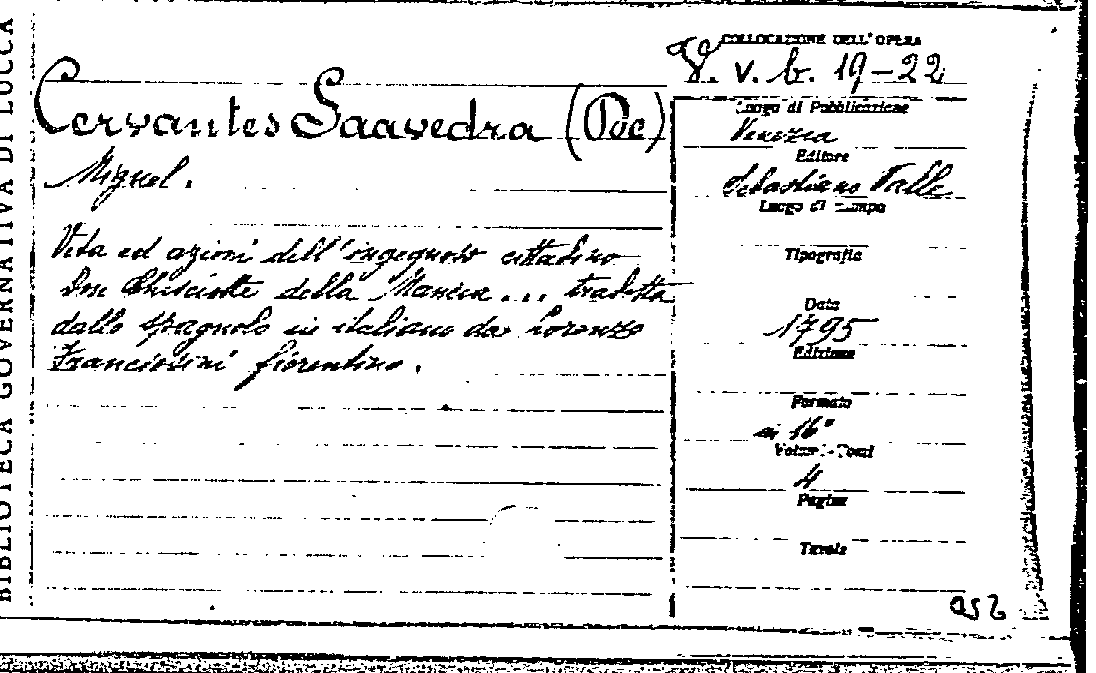 BIBLIOTECA GOVERNATIVA DI LUCCA
COLLOCAZIONE DELL'OPERA
V. b. 19-22
Cervantes Saavedra (De)
Miguel.
Vita ed azioni dell'ingegnoso cittadino
Don Chisciotte della Mancia... tradotta
dallo spagnolo in italiano da Lorenzo
Franciosini fiorentino.
Luogo di Pubblicazione
Venezia
Editore
Sebastiano Valle
Luogo di Stampa
Tipografia
Data
1795
Edizione
Formato
in 16°
Volumi-Tomi
4
Pagine
Tavole